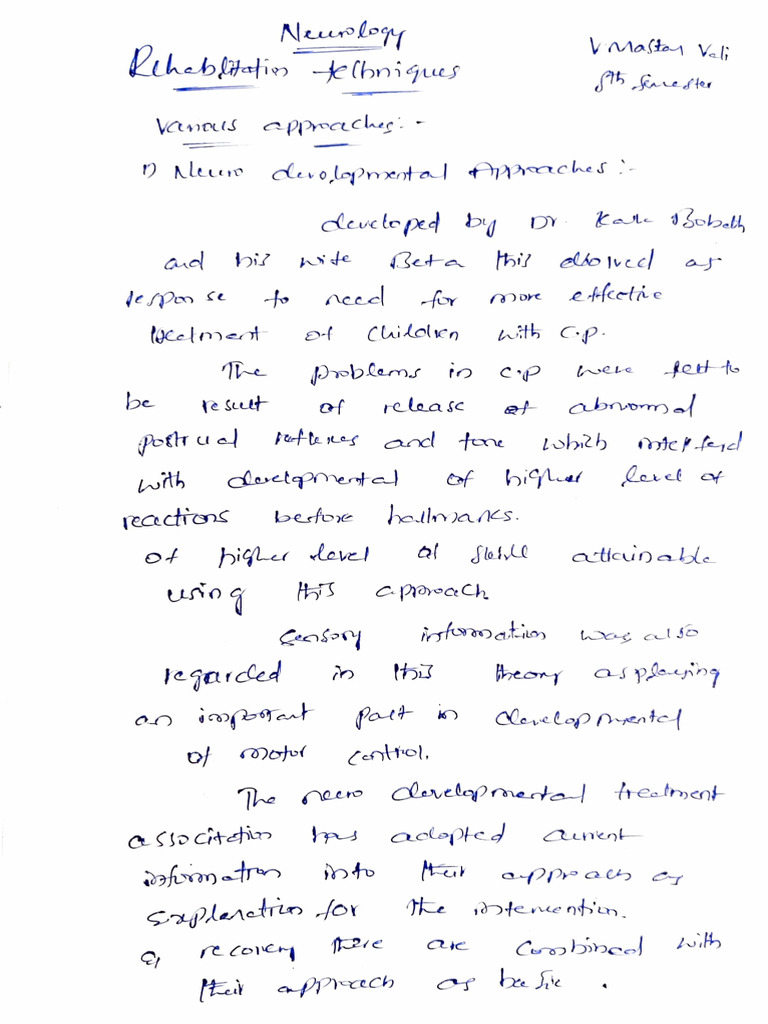 Neurology
Rehablitation techniques
V Mastan Vali
8th semester
Various approaches:-
1) Neuro developmental Approaches:-
developed by Dr. Kare Bobath
and his wife Beta this disolved as
response to need for more effective
treatment of children with C.P.
The problems in C.P were felt to
be result of release of abnormal
postrual reflexes and tone which
with developmental of higher level of
reactions before hallmarks.
of higher level of attainable
using this approach
sensory information was also
regarded in this theory as playing
an important part in developmental
of motor control.
The neuro developmental treatment
association has adopted current
information into their approach as
explanation for the intervention.
recovery there are combined with
their approach as basic .